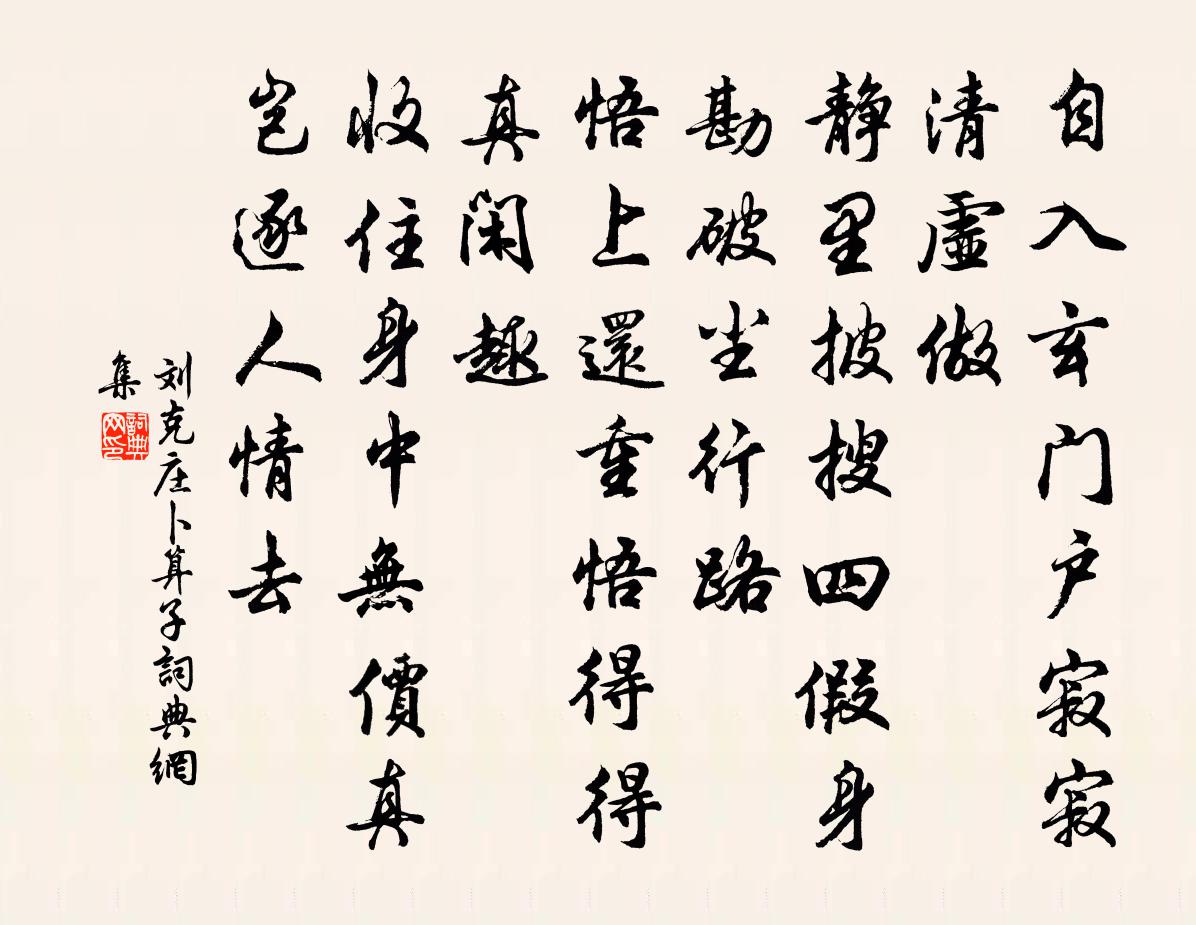 自入玄门户寂寂
清虚做
静里披搜四假身
勘破尘行路
悟上還重悟得得
真闲趣
收住身中無價真
岂逐人情去
刘克庄卜算子詞典網
集
詞典
网印